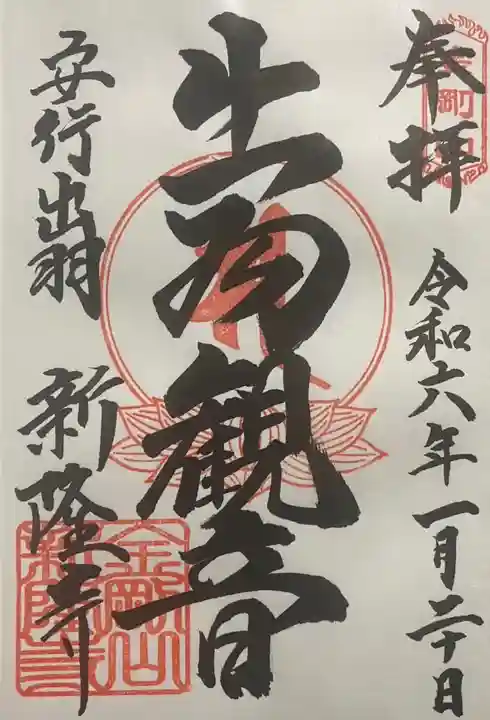 奉拝
令和六年一月二十日
出羽観音
安行出羽
新隆寺
金剛山
新隆寺